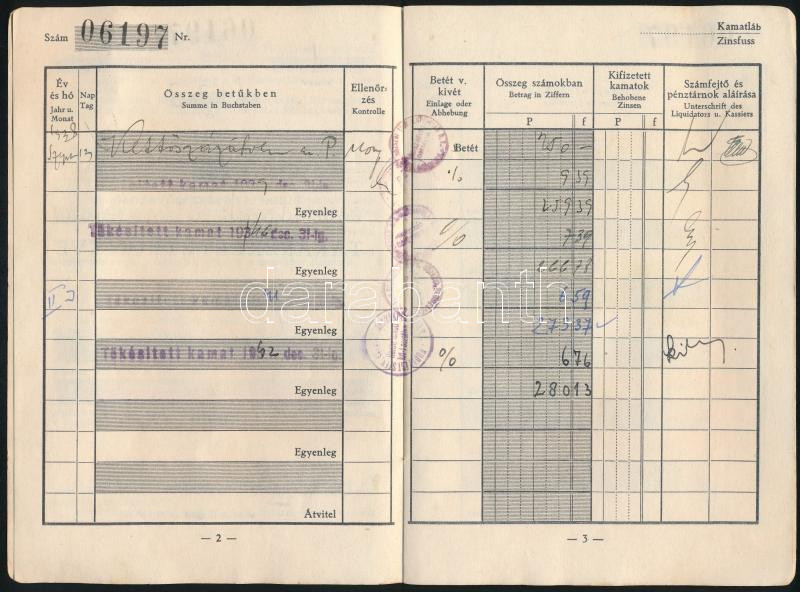 Szám 06197 Nr.
Kamatláb
Zinsfuss
Év és hó
Jahr u. Monat
Nap
Tag
Összeg betűkben
Summe in Buchstaben
Ellenőrzés
Kontrolle
Betét v. kivét
Einlage oder Abhebung
Összeg számokban
Betrag in Ziffern
P f
Kifizetett kamatok
Behobene Zinsen
P f
Számfejtő és pénztárnok aláírása
Unterschrift des Liquidators u. Kassiers
1938
13
P.
Betét
250 —
dec. 31-ig
%
9 39
Egyenleg
259 39
Tőkésitett kamat 19 dec. 31-ig.
%
7 39
Egyenleg
266 78
kamat
6 59
Egyenleg
273 37
Tőkésitett kamat 1942 dec. 31-ig.
%
6 76
Egyenleg
280 13
Egyenleg
Átvitel
— 2 —
— 3 —
darabanth